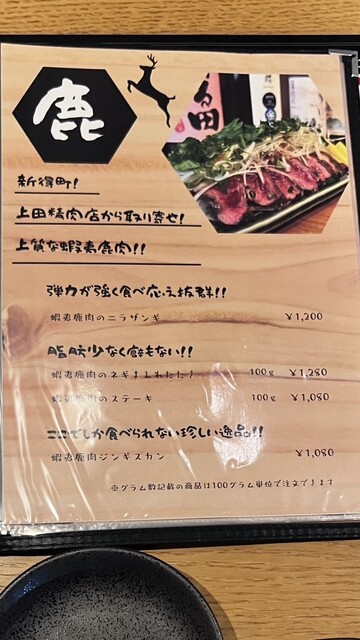 鹿
田
新得町!
上田精肉店から取り寄せ!
上質な蝦夷鹿肉!!
弾力が強く食べ応え抜群!!
蝦夷鹿肉のニラザンギ ¥1,200
脂肪少なく癖もない!!
蝦夷鹿肉のネギまみれたたき 100g ¥1,280
蝦夷鹿肉のステーキ 100g ¥1,080
ここでしか食べられない珍しい逸品!!
蝦夷鹿肉ジンギスカン ¥1,080
※グラム数記載の商品は100グラム単位で注文できます